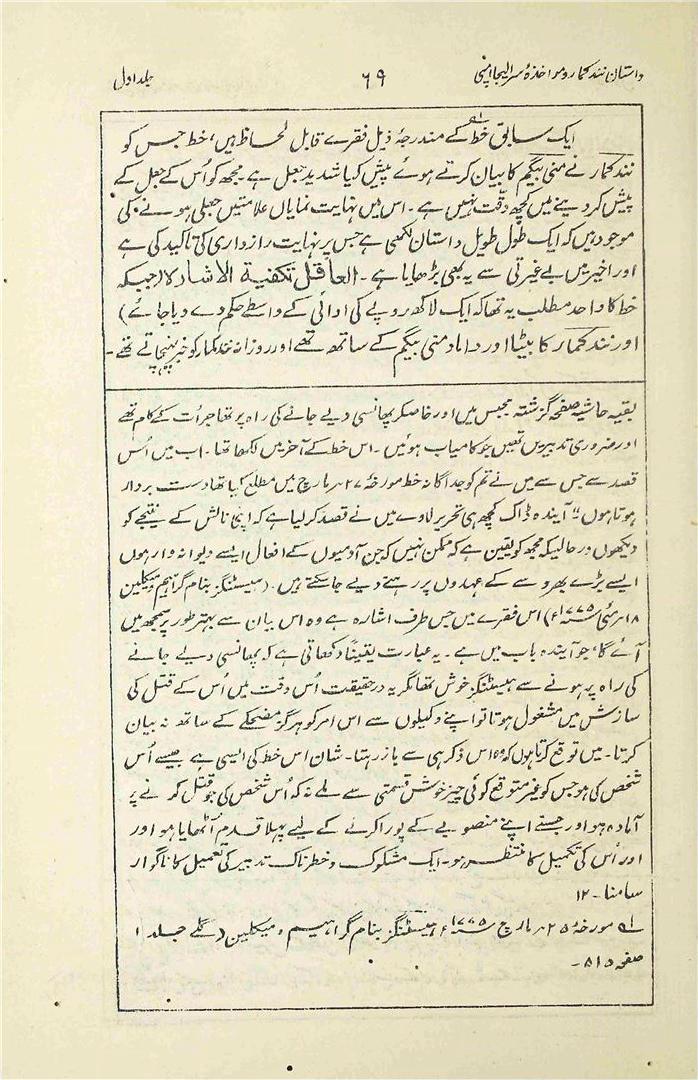 داستان نند کمار و مواخذۂ سر الیجا امپی ۶۹ جلد اول
ایک سابق خط ۱ کے مندرجۂ ذیل فقرے قابل لحاظ ہیں، خط جس کو
نند کمار نے منی بیگم کا بیان کرتے ہوئے پیش کیا شدید جعل ہے۔ مجھ کو اُس کے جعل کے
پیش کر دینے میں کچھ دقت نہیں ہے۔ اس میں نہایت نمایاں علامتیں جعلی ہونے کی
موجود ہیں کہ ایک طول طویل داستان لکھی ہے جس پر نہایت رازداری کی تاکید کی ہے
اور اخیر میں بے غیرتی سے یہ بھی بڑھایا ہے۔ العاقل تکفیۃ الاشادلا (جبکہ
خط کا واحد مطلب یہ تھا کہ ایک لاکھ روپے کی ادائی کے واسطے حکم دے دیا جائے)
اور نند کمار کا بیٹا اور داماد منی بیگم کے ساتھ تھے اور روزانہ نند کمار کو خبر پہنچاتے تھے۔
بقیہ حاشیہ صفحہ گزشتہ مجبس میں اور خاصکر پھانسی دیے جانے کی راہ پر تھا جرأت کے کام تھے
اور ضروری تدبیریں تھیں جو کامیاب ہوئیں۔ اس خط کے آخر میں لکھا تھا۔ اب میں اُس
قصد سے جس سے میں نے تم کو جداگانہ خط مورخۂ ۲۷ مارچ میں مطلع کیا تھا دست بردار
ہوتا ہوں" آیندہ ڈاک کچھ ہی تحریر لاوے میں نے قصد کر لیا ہے کہ اپنی نالش کے نتیجے کو
دیکھوں درحالیکہ مجھ کو یقین ہے کہ ممکن نہیں کہ جن آدمیوں کے افعال ایسے دیوانہ وار ہوں
ایسے بڑے بھروسے کے عہدوں پر رہنے دیے جا سکتے ہیں۔ (ہیسٹنگز بنام گراہیم و میکلین
۱۸ مئی ۱۷۷۵ء) اس فقرے میں جس طرف اشارہ ہے وہ اس بیان سے بہتر طور پر سمجھ میں
آئے گا، جو آیندہ باب میں ہے۔ یہ عبارت یقیناً دکھاتی ہے کہ پھانسی دیے جانے
کی راہ پر ہونے سے ہیسٹنگز خوش تھا مگر یہ درحقیقت اُس وقت میں اُس کے قتل کی
سازش میں مشغول ہوتا تو اپنے وکیلوں سے اس امر کو ہرگز مضحکے کے ساتھ نہ بیان
کرتا۔ میں توقع کرتا ہوں کہ وہ اس ذکر ہی سے باز رہتا۔ شان اس خط کی ایسی ہے جیسے اُس
شخص کی ہو جس کو غیر متوقع کوئی چیز خوش قسمتی سے ملے نہ کہ اُس شخص کی جو قتل کرنے پر
آمادہ ہو اور جسنے اپنے منصوبے کے پورا کرنے کے لیے پہلا قدم اُٹھایا ہو اور
اور اُس کی تکمیل کا منتظر ہو۔ ایک مشکوک و خطرناک تدبیر کی تعمیل کا ناگوار
سامنا۔ ۱۲
۱ مورخۂ ۲۵ مارچ ۱۷۷۵ء ہیسٹنگز بنام گراہیم و میکلین (گلے جلد ۱
صفحہ ۵۱۵۔